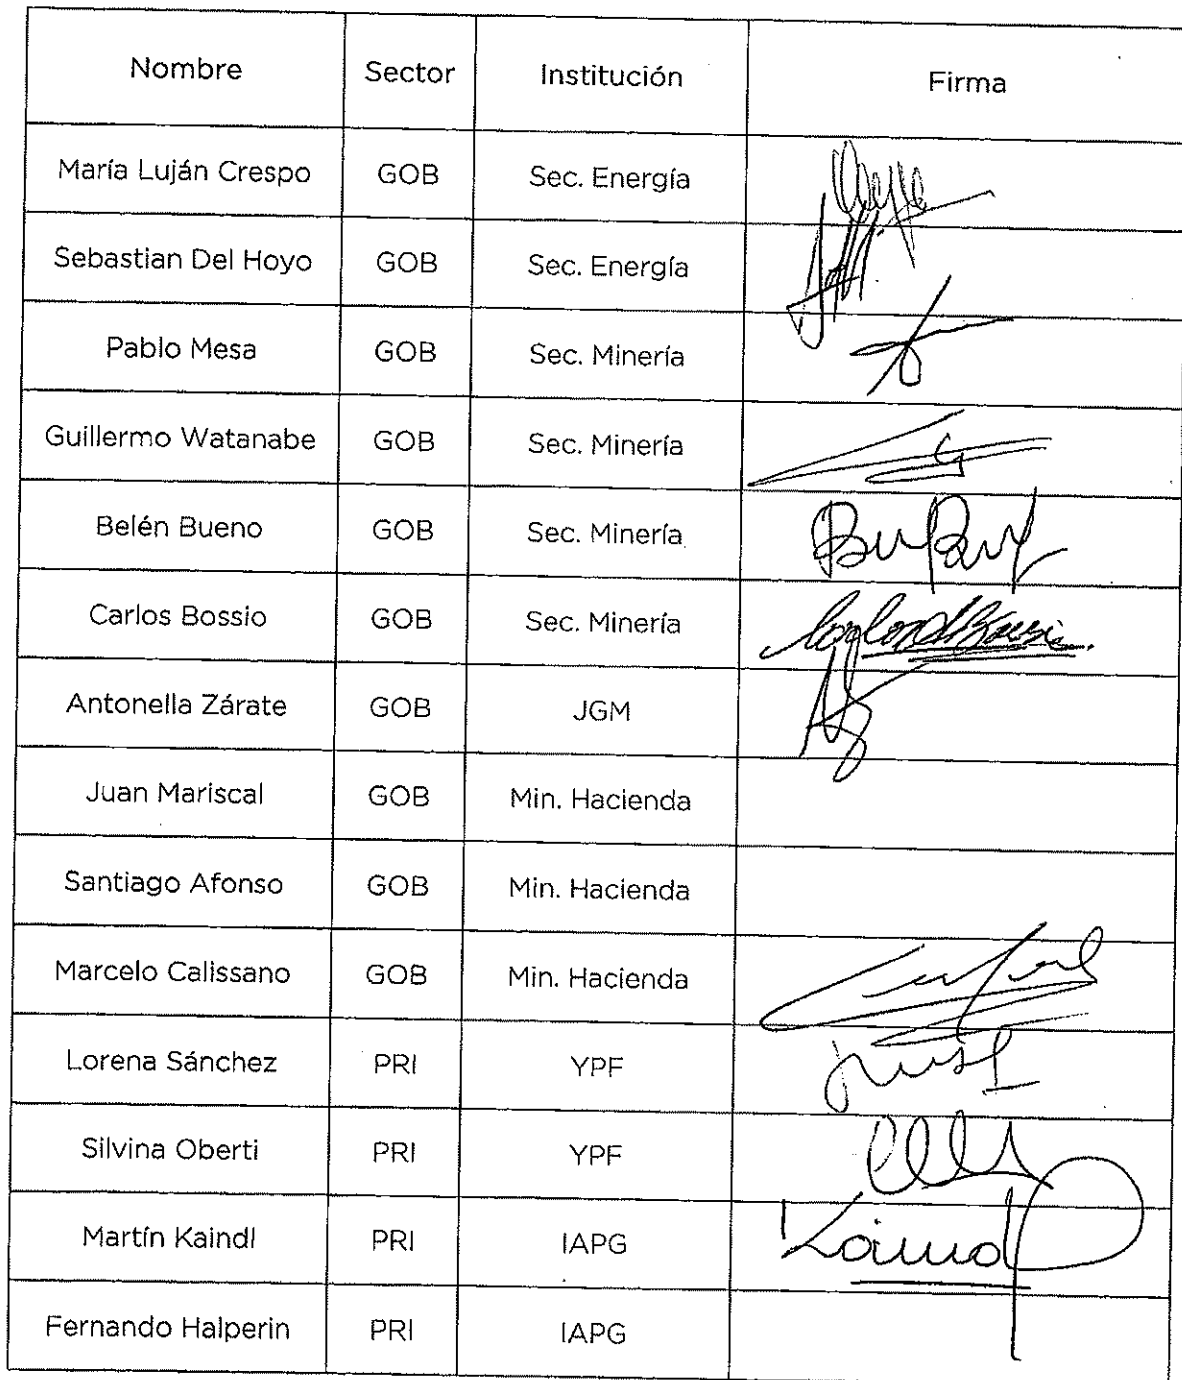 Nombre Sector Institución Firma
María Luján Crespo GOB Sec. Energía
Sebastian Del Hoyo GOB Sec. Energía
Pablo Mesa GOB Sec. Minería
Guillermo Watanabe GOB Sec. Minería
Belén Bueno GOB Sec. Minería
Carlos Bossio GOB Sec. Minería
Antonella Zárate GOB JGM
Juan Mariscal GOB Min. Hacienda
Santiago Afonso GOB Min. Hacienda
Marcelo Calissano GOB Min. Hacienda
Lorena Sánchez PRI YPF
Silvina Oberti PRI YPF
Martín Kaindl PRI IAPG
Fernando Halperin PRI IAPG